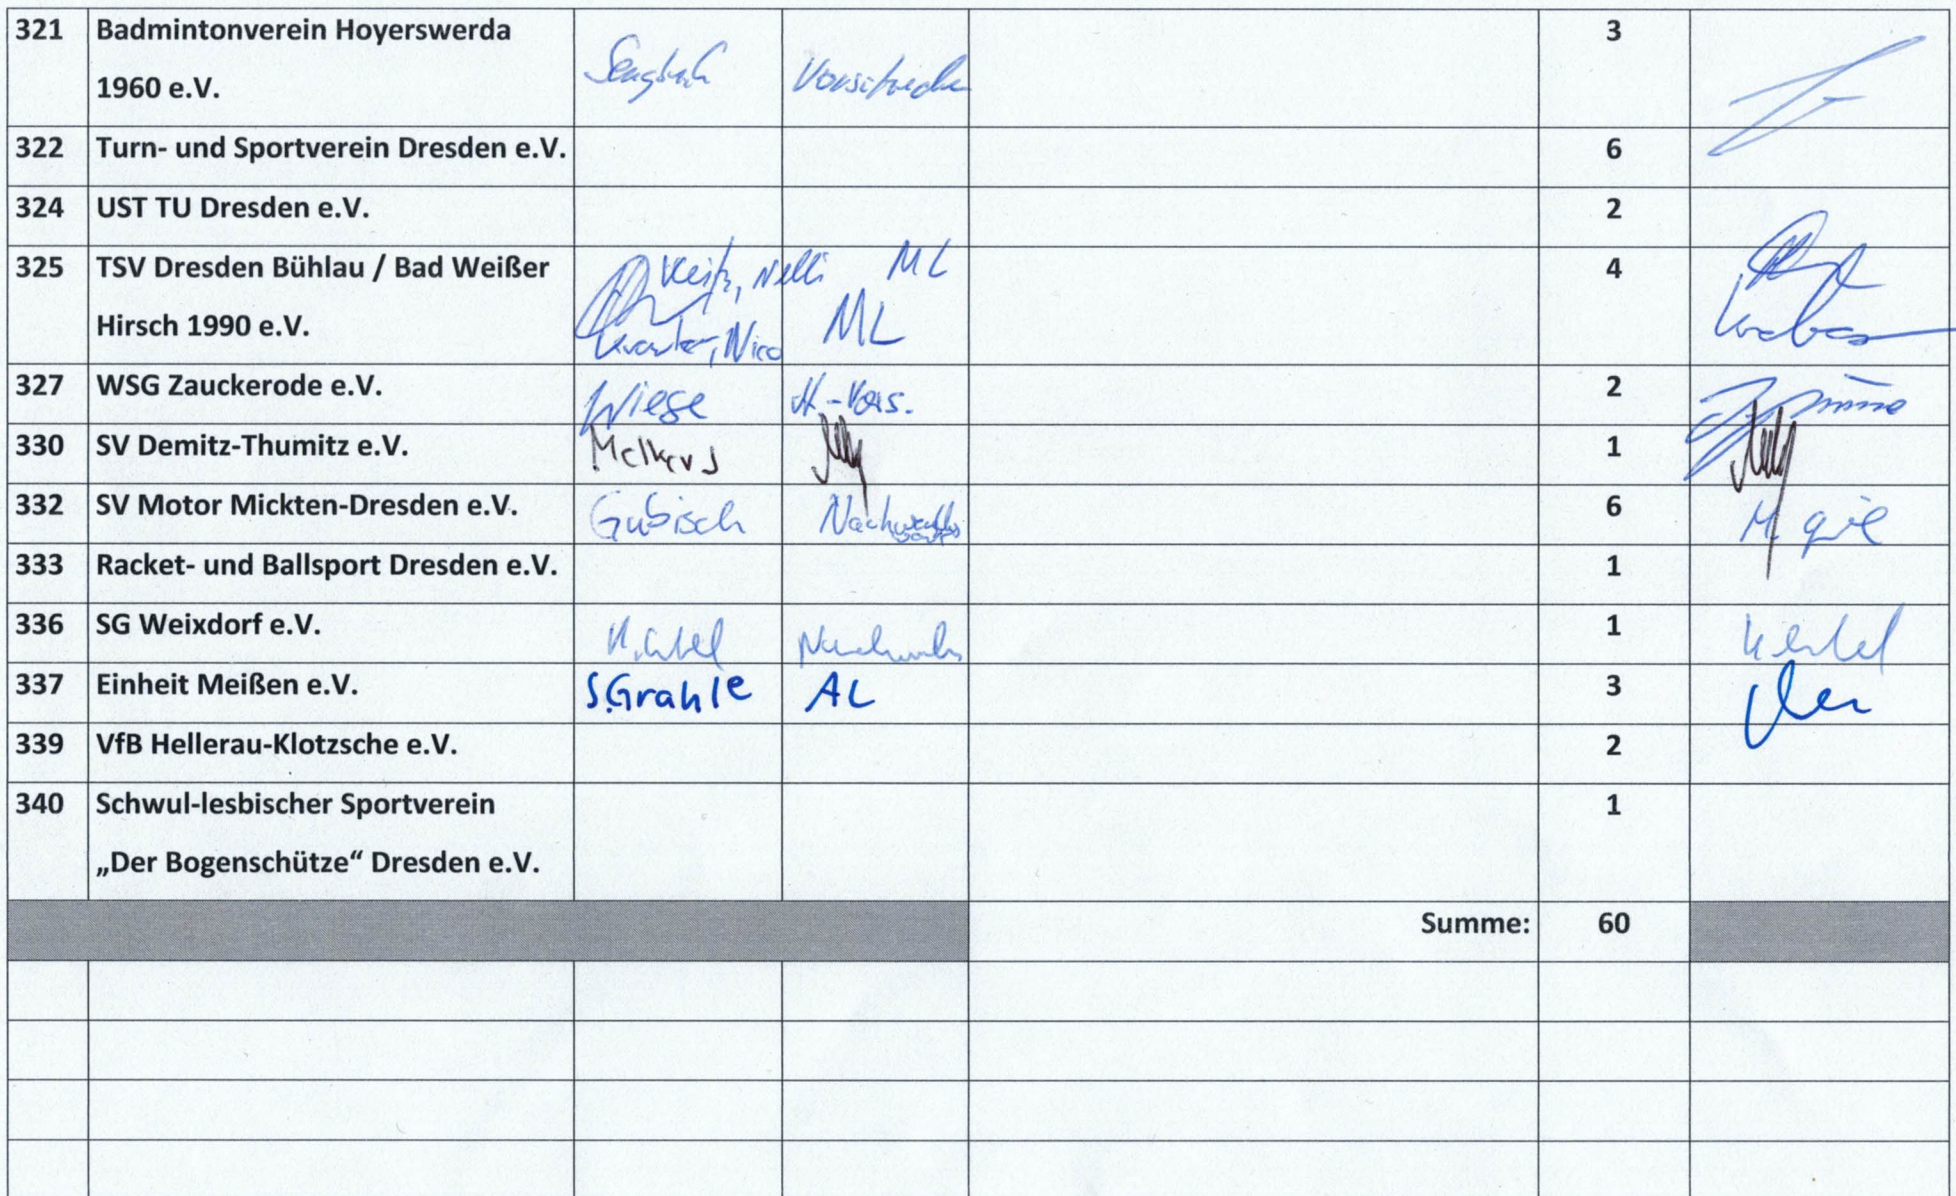 321 Badmintonverein Hoyerswerda 3
1960 e.V.
322 Turn- und Sportverein Dresden e.V. 6
324 UST TU Dresden e.V. 2
325 TSV Dresden Bühlau / Bad Weißer Nelli ML 4
Hirsch 1990 e.V. Nico ML
327 WSG Zauckerode e.V. Wiese 2
330 SV Demitz-Thumitz e.V. 1
332 SV Motor Mickten-Dresden e.V. Gubisch 6
333 Racket- und Ballsport Dresden e.V. 1
336 SG Weixdorf e.V. 1
337 Einheit Meißen e.V. S.Grahle AL 3
339 VfB Hellerau-Klotzsche e.V. 2
340 Schwul-lesbischer Sportverein 1
„Der Bogenschütze“ Dresden e.V.
Summe: 60